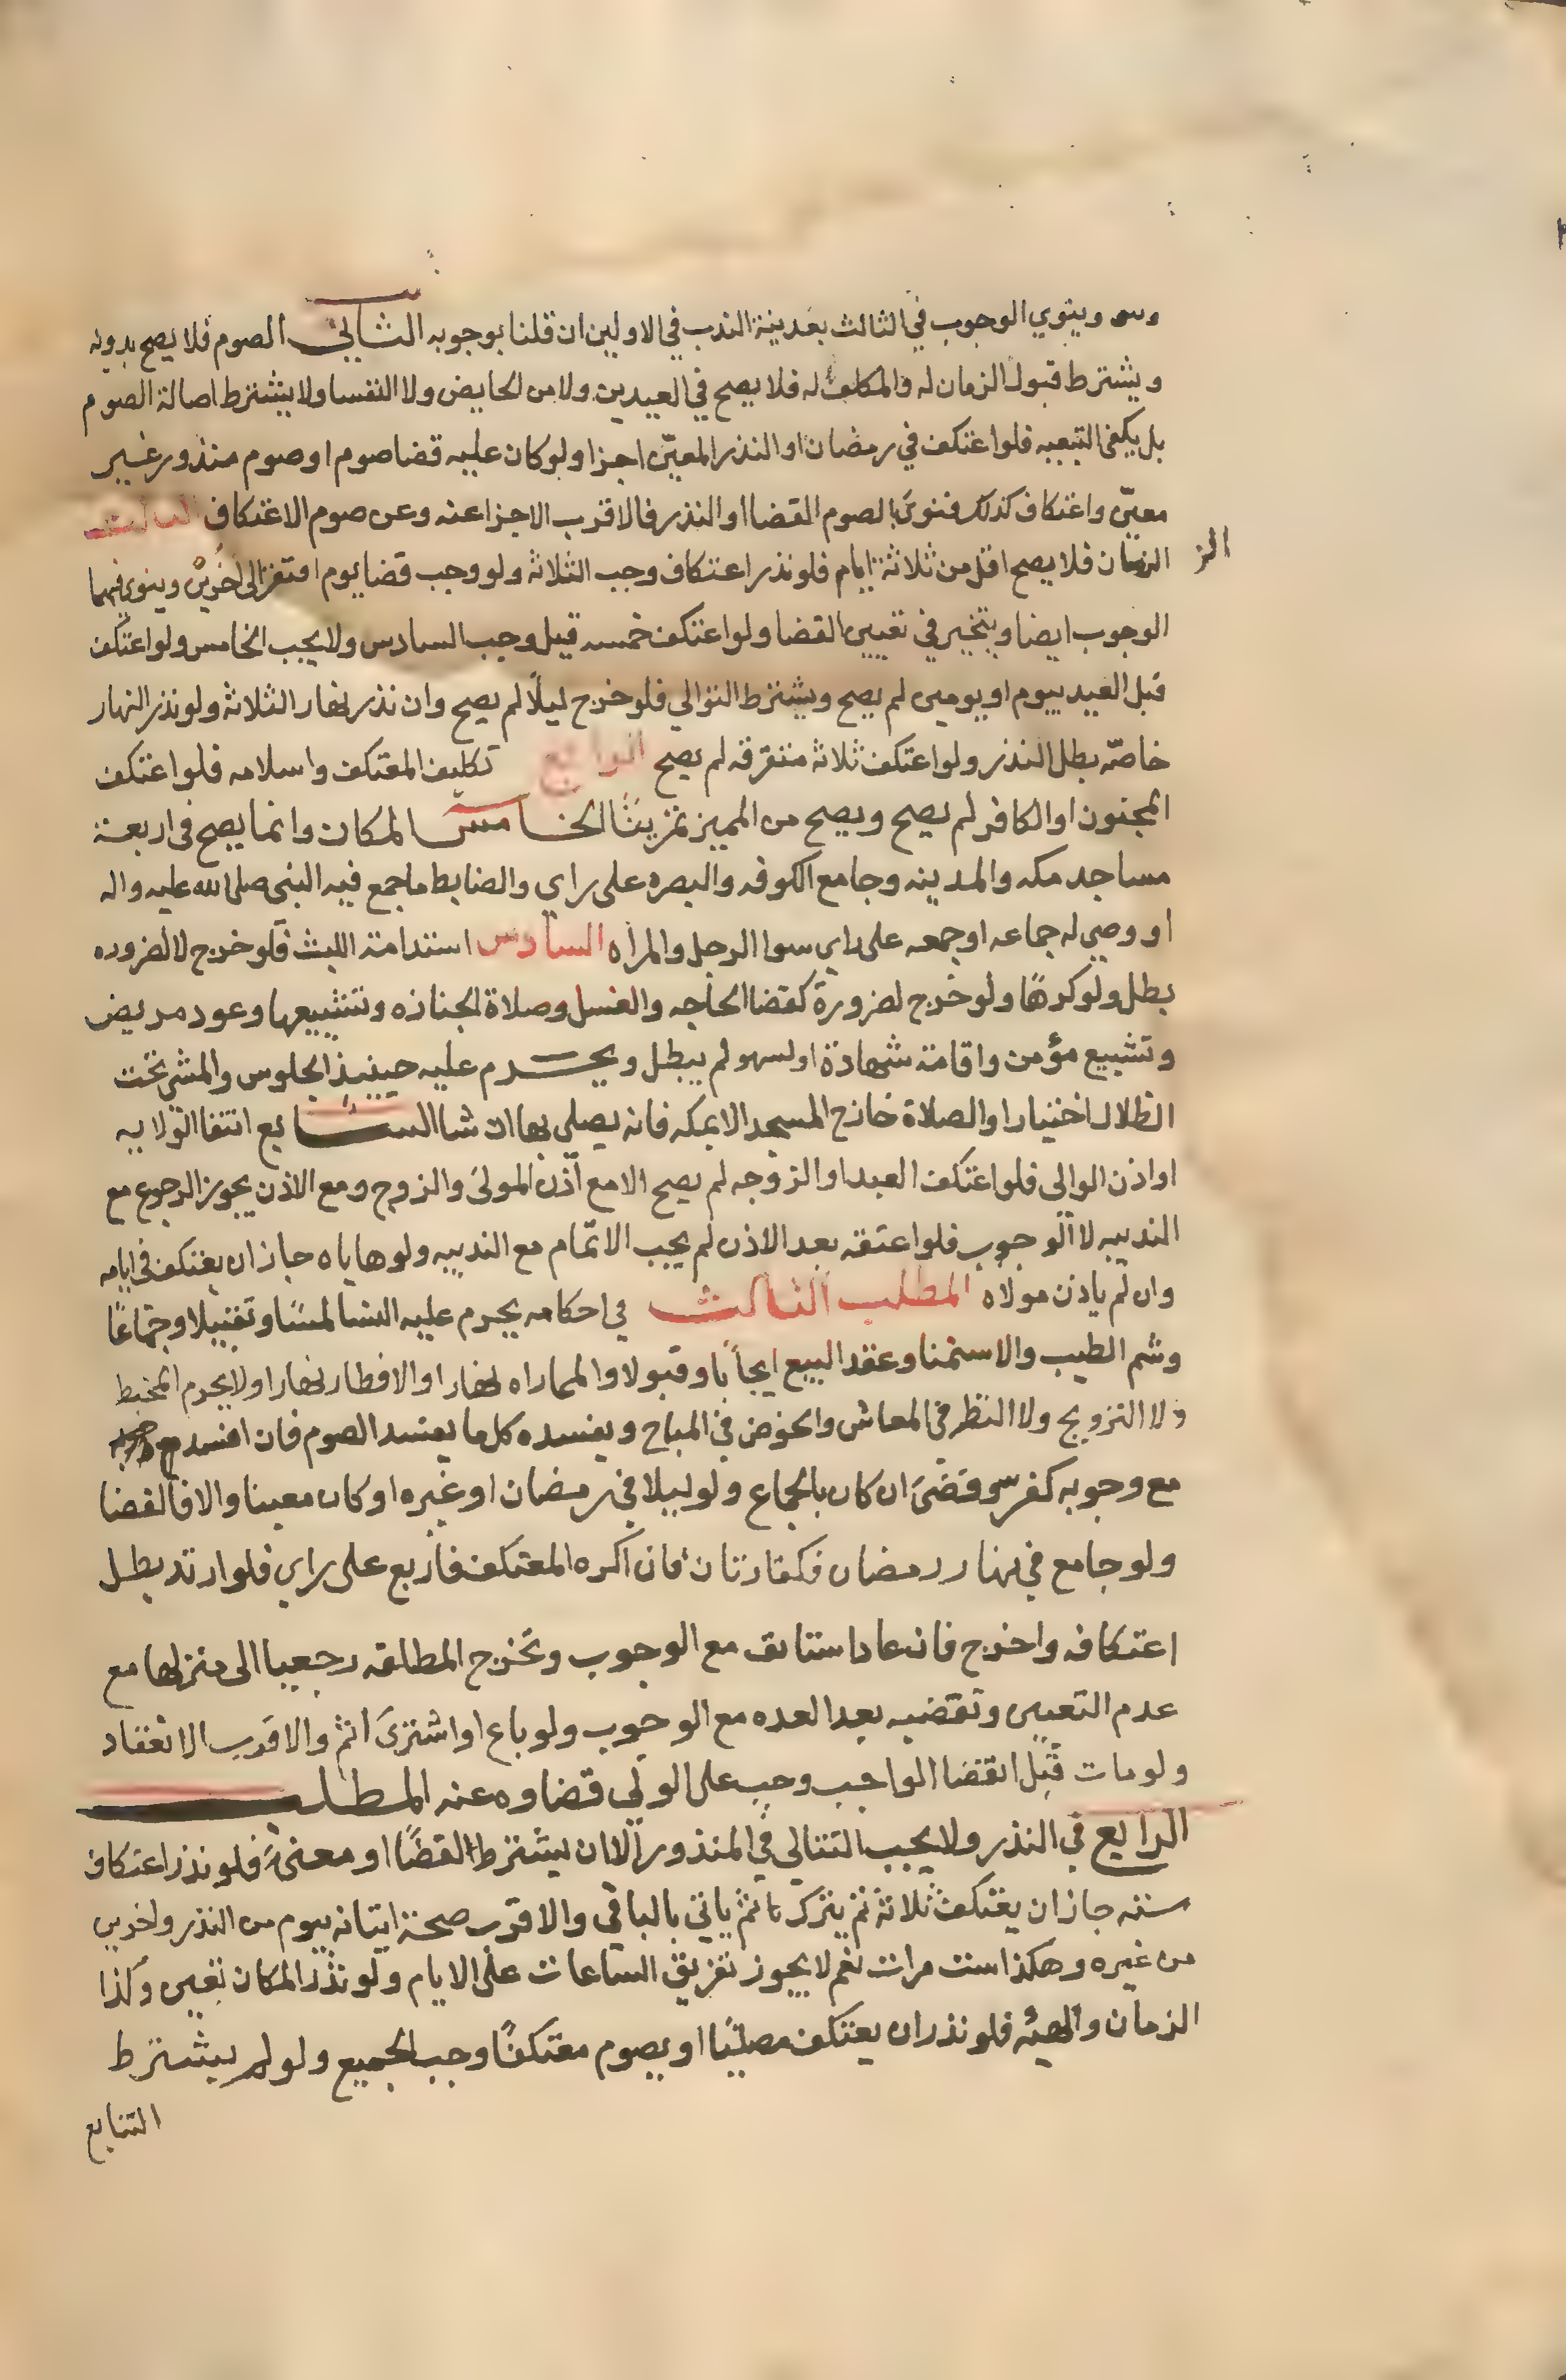 وينوي الوجوب في الثالث بعد نية الندب في الاولين ان قلنا بوجوبه الثاني الصوم فلا يصح بدونه
ويشترط قبول الزمان له والمكلف له فلا يصح في العيدين ولا من الحايض ولا النفسا ولا يشترط اصالة الصوم
بل يكفي التبعيه فلو اعتكف في رمضان او النذر المعيّن اجزا ولو كان عليه قضا صوم او صوم منذور غير
معيّن واعتكاف كذلك فنوى بالصوم القضا او النذر فالاقرب الاجزا عنه وعن صوم الاعتكاف الثالث
الز
الزمان فلا يصح اقل من ثلاثة ايام فلو نذر اعتكاف وجب الثلاثة ولو وجب قضا يوم افتقر الى اخرين وينوي فيهما
الوجوب ايضا ويتخير في تعيين القضا ولو اعتكف خمسه قيل وجب السادس ولا يجب الخامس ولو اعتكف
قبل العيد بيوم او يومين لم يصح ويشترط التوالي فلو خرج ليلًا لم يصح وان نذر نهار الثلاثة ولو نذر النهار
خاصّه بطل النذر ولو اعتكف ثلاثة متفرقه لم يصح الرابع تكليف المعتكف واسلامه فلو اعتكف
المجنون او الكافر لم يصح ويصح من المميز تمرينًا الخامس المكان وانما يصح في اربعة
مساجد مكه والمدينه وجامع الكوفه والبصره على راي والضابط ما جمع فيه النبى صلى الله عليه واله
او وصي له جماعه او جمعه على راي سوا الرجل والمراه السادس استدامة اللبث فلو خرج لا لضروره
بطل ولو كرهًا ولو خرج لضرورة كقضا الحاجه والغسل وصلاة الجنازه وتشييعها وعود مريض
وتشييع مؤمن واقامة شهادة او لسهو لم يبطل ويحرم عليه حينيذ الجلوس والمشي تحت
الظلال اختيارا والصلاة خارج المسجد الا بمكه فانه يصلي بها ان شا السابع انتفا الولايه
او اذن الوالي فلو اعتكف العبد او الزوجه لم يصح الا مع اذن المولى والزوج ومع الاذن يجوز الرجوع مع
الندبيه لا الوجوب فلو اعتقه بعد الاذن لم يجب الاتمام مع الندبيه ولو هاياه جاز ان يعتكف في ايامه
وان لم ياذن مولاه المطلب الثالث في احكامه يحرم عليه النسا لمسًا وتقبيلا وجماعًا
وشم الطيب والاستمنا وعقد البيع ايجابا وقبولا والمماراه نهارا والافطار نهارا ولا يحرم المخيط
ولا التزويج ولا النظر في المعاش والخوض في المباح ويفسده كل ما يفسد الصوم فان افسده
مع وجوبه كفر وقضى ان كان بالجماع ولو ليلا في رمضان او غيره او كان معينا والا فالقضا
ولو جامع في نهار رمضان فكفارتان فان اكره المعتكف فاربع على راي فلو ارتد بطل
اعتكافه واخرج فان عاد استانف مع الوجوب وتخرج المطلقه رجعيا الى منزلها مع
عدم التعيين وتقضيه بعد العده مع الوجوب ولو باع او اشترى اثم والاقرب الانعقاد
ولو مات قبل انقضا الواجب وجب على الولي قضاوه عنه المطلب
الرابع في النذر ولا يجب التتالي في المنذور الا ان يشترط لفظًا او معنى فلو نذر اعتكاف
ستة جاز ان يعتكف ثلاثة ثم يترك ثم ياتي بالباقي والاقرب صحة اتيانه بيوم من النذر واخرين
من غيره وهكذا ست مرات نعم لا يجوز تفريق الساعات على الايام ولو نذر المكان تعين وكذا
الزمان والهيئه فلو نذر ان يعتكف مصليًا او يصوم معتكفًا وجب الجميع ولو لم يشترط
التتابع